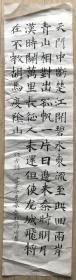 天門中斷楚江開碧水東流至此回兩岸
青山相對出孤帆一片日邊來秦時明月
漢時關萬里長征人未還但使龍城飛將
在不教胡馬度陰山